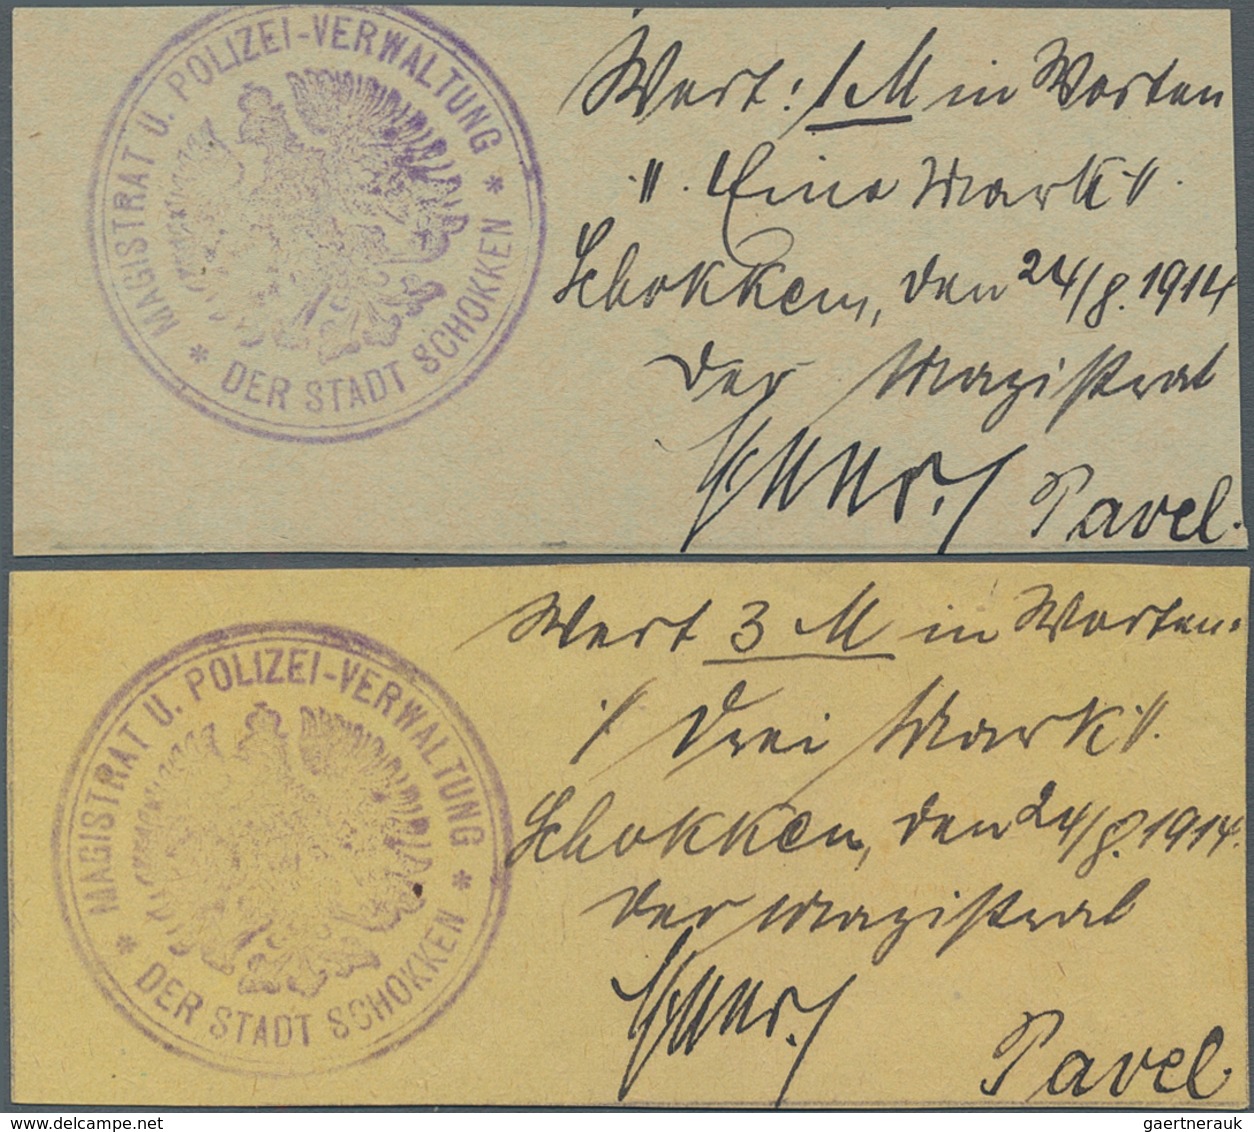 MAGISTRAT U. POLIZEI-VERWALTUNG
* DER STADT SCHOKKEN *
Wert: 1 M in Worten
"Eine Mark"
Schokken, den 24/8. 1914
Der Magistrat
Pavel.
MAGISTRAT U. POLIZEI-VERWALTUNG
* DER STADT SCHOKKEN *
Wert 3 M in Worten:
"Drei Mark"
Schokken, den 24/8. 1914.
Der Magistrat
Pavel.
www.delcampe.net
gaertnerauk